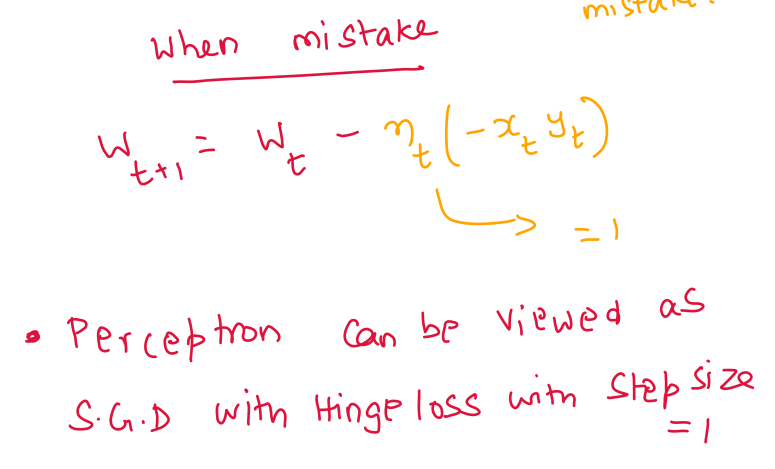 mistake.
When mistake
W_{t+1} = W_t - η_t (-x_t y_t)
= 1
• Perceptron can be viewed as
S.G.D with Hinge loss with step size
= 1